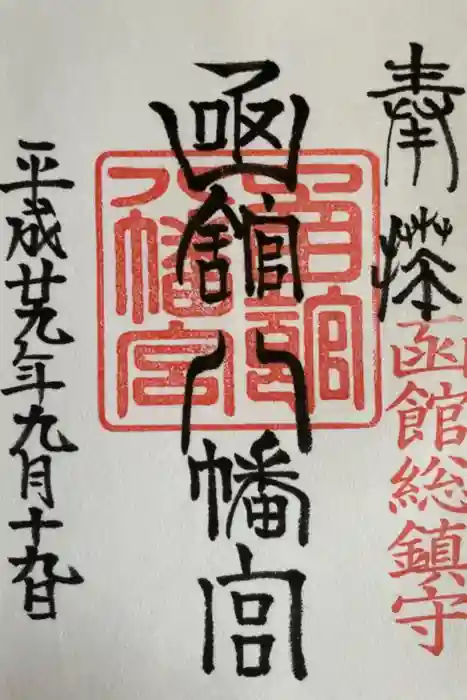 奉拝
函館総鎮守
函館八幡宮
函館八幡宮
平成廿九年九月十九日